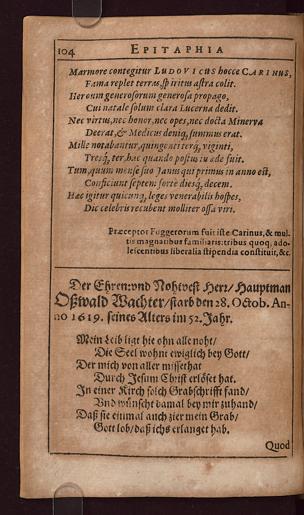 104 EPITAPHIA
Marmore contegitur LUDOVICUS hocce CARINUS,
Fama replet terras, spiritus astra colit.
Heroum generosorum generosa propago,
Cui natale solum clara Lucerna dedit.
Nec virtus, nec honor, nec opes, nec docta Minerva
Deerat, & Medicus deniq; summus erat.
Mille notabantur, quingenti terq; viginti,
Tresq; ter hac quando postus in æde fuit.
Tum, quum mense suo Janus qui primus in anno est,
Conficiunt septem forte diesq; decem.
Hac igitur quicunq; leges venerabilis hospes,
Dic celebris recubent molliter ossa viri.
Præceptor Fuggerorum fuit iste Carinus, & mul-
tis magnatibus familiaris: tribus quoq; ado-
lescentibus liberalia stipendia constituit, &c.
Der Ehren: und Nohtvest Herr/ Hauptman
Oßwald Wachter/ starb den 28. Octob. An-
no 1619. seines Alters im 52. Jahr.
Mein Leib ligt hie ohn alle noht/
Die Seel wohnt ewiglich bey Gott/
Der mich von aller missethat
Durch Jesum Christ erlöset hat.
In einer Kirch solch Grabschrifft fand/
Vnd wünscht damal bey mir zuhand/
Daß sie einmal auch zier mein Grab/
Gott lob/ daß ichs erlanget hab.
Quod